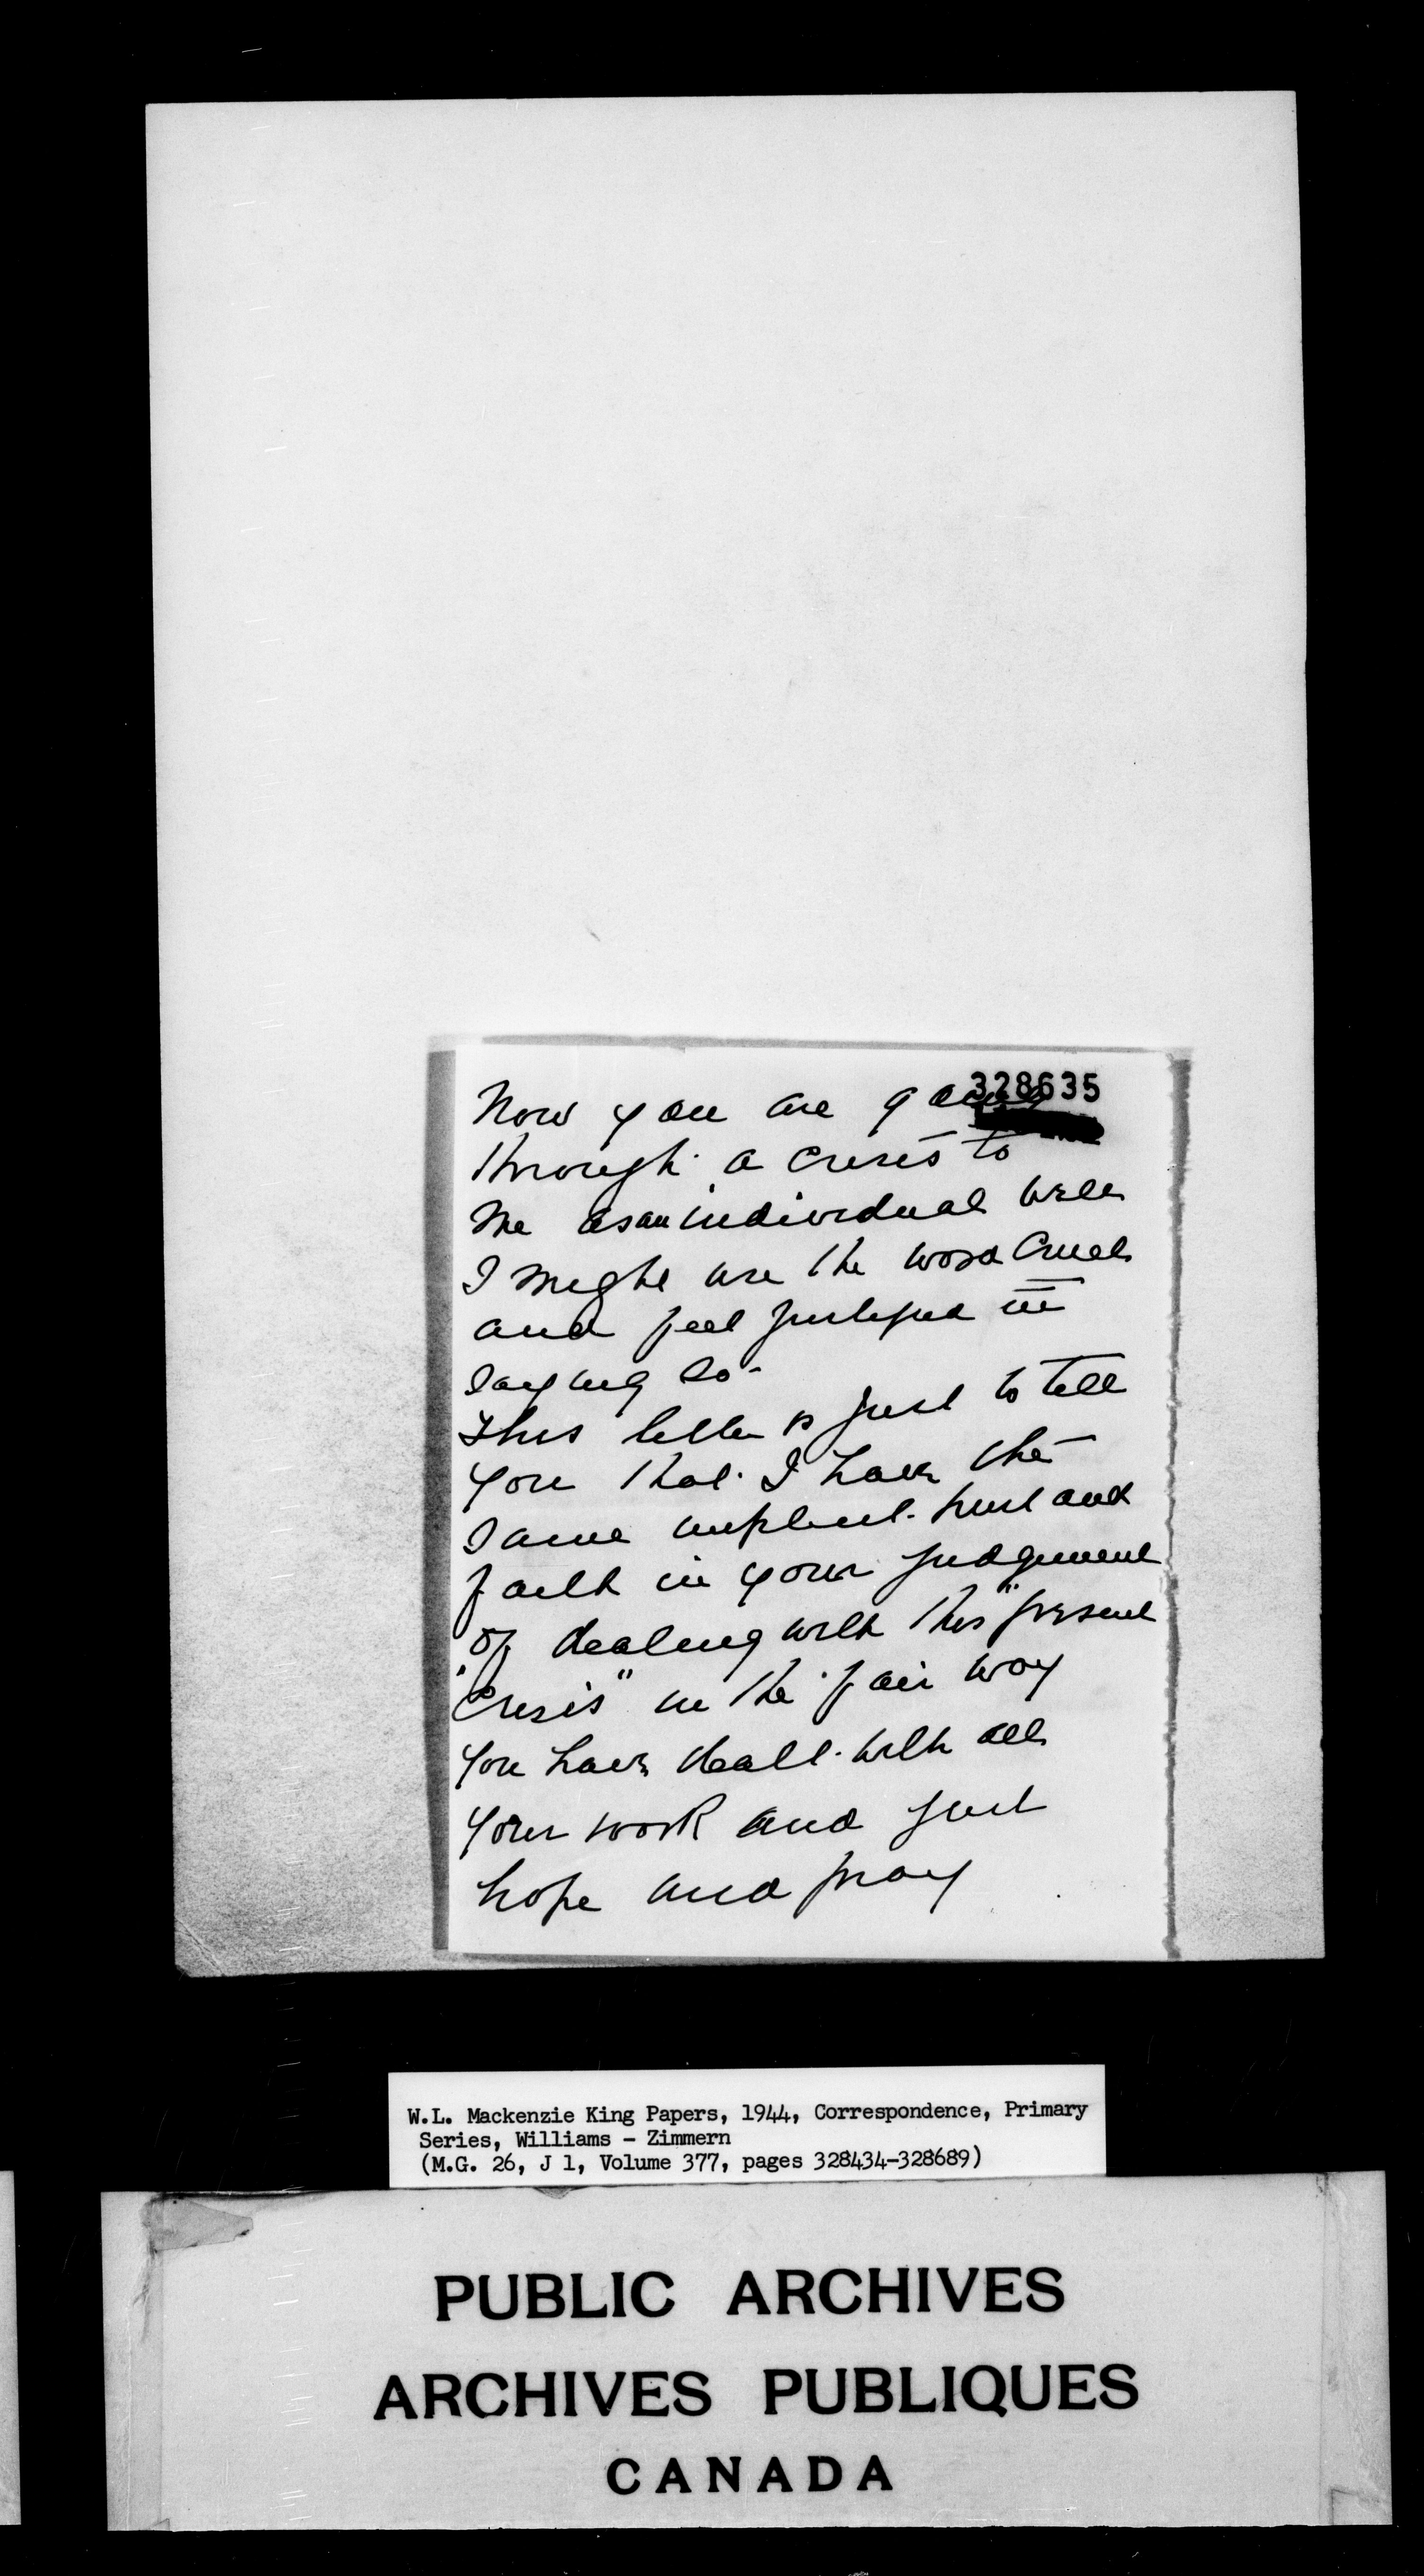 328635
Now you are going
through a crisis to
me as an individual well
I might use the word Cruel
and feel justified in
saying so -
This letter is just to tell
you that I have the
same implicit trust and
faith in your judgement
of dealing with this "present
crisis" in the fair way
you have dealt with all
your work and just
hope and pray
W.L. Mackenzie King Papers, 1944, Correspondence, Primary
Series, Williams - Zimmern
(M.G. 26, J 1, Volume 377, pages 328434-328689)
PUBLIC ARCHIVES
ARCHIVES PUBLIQUES
CANADA